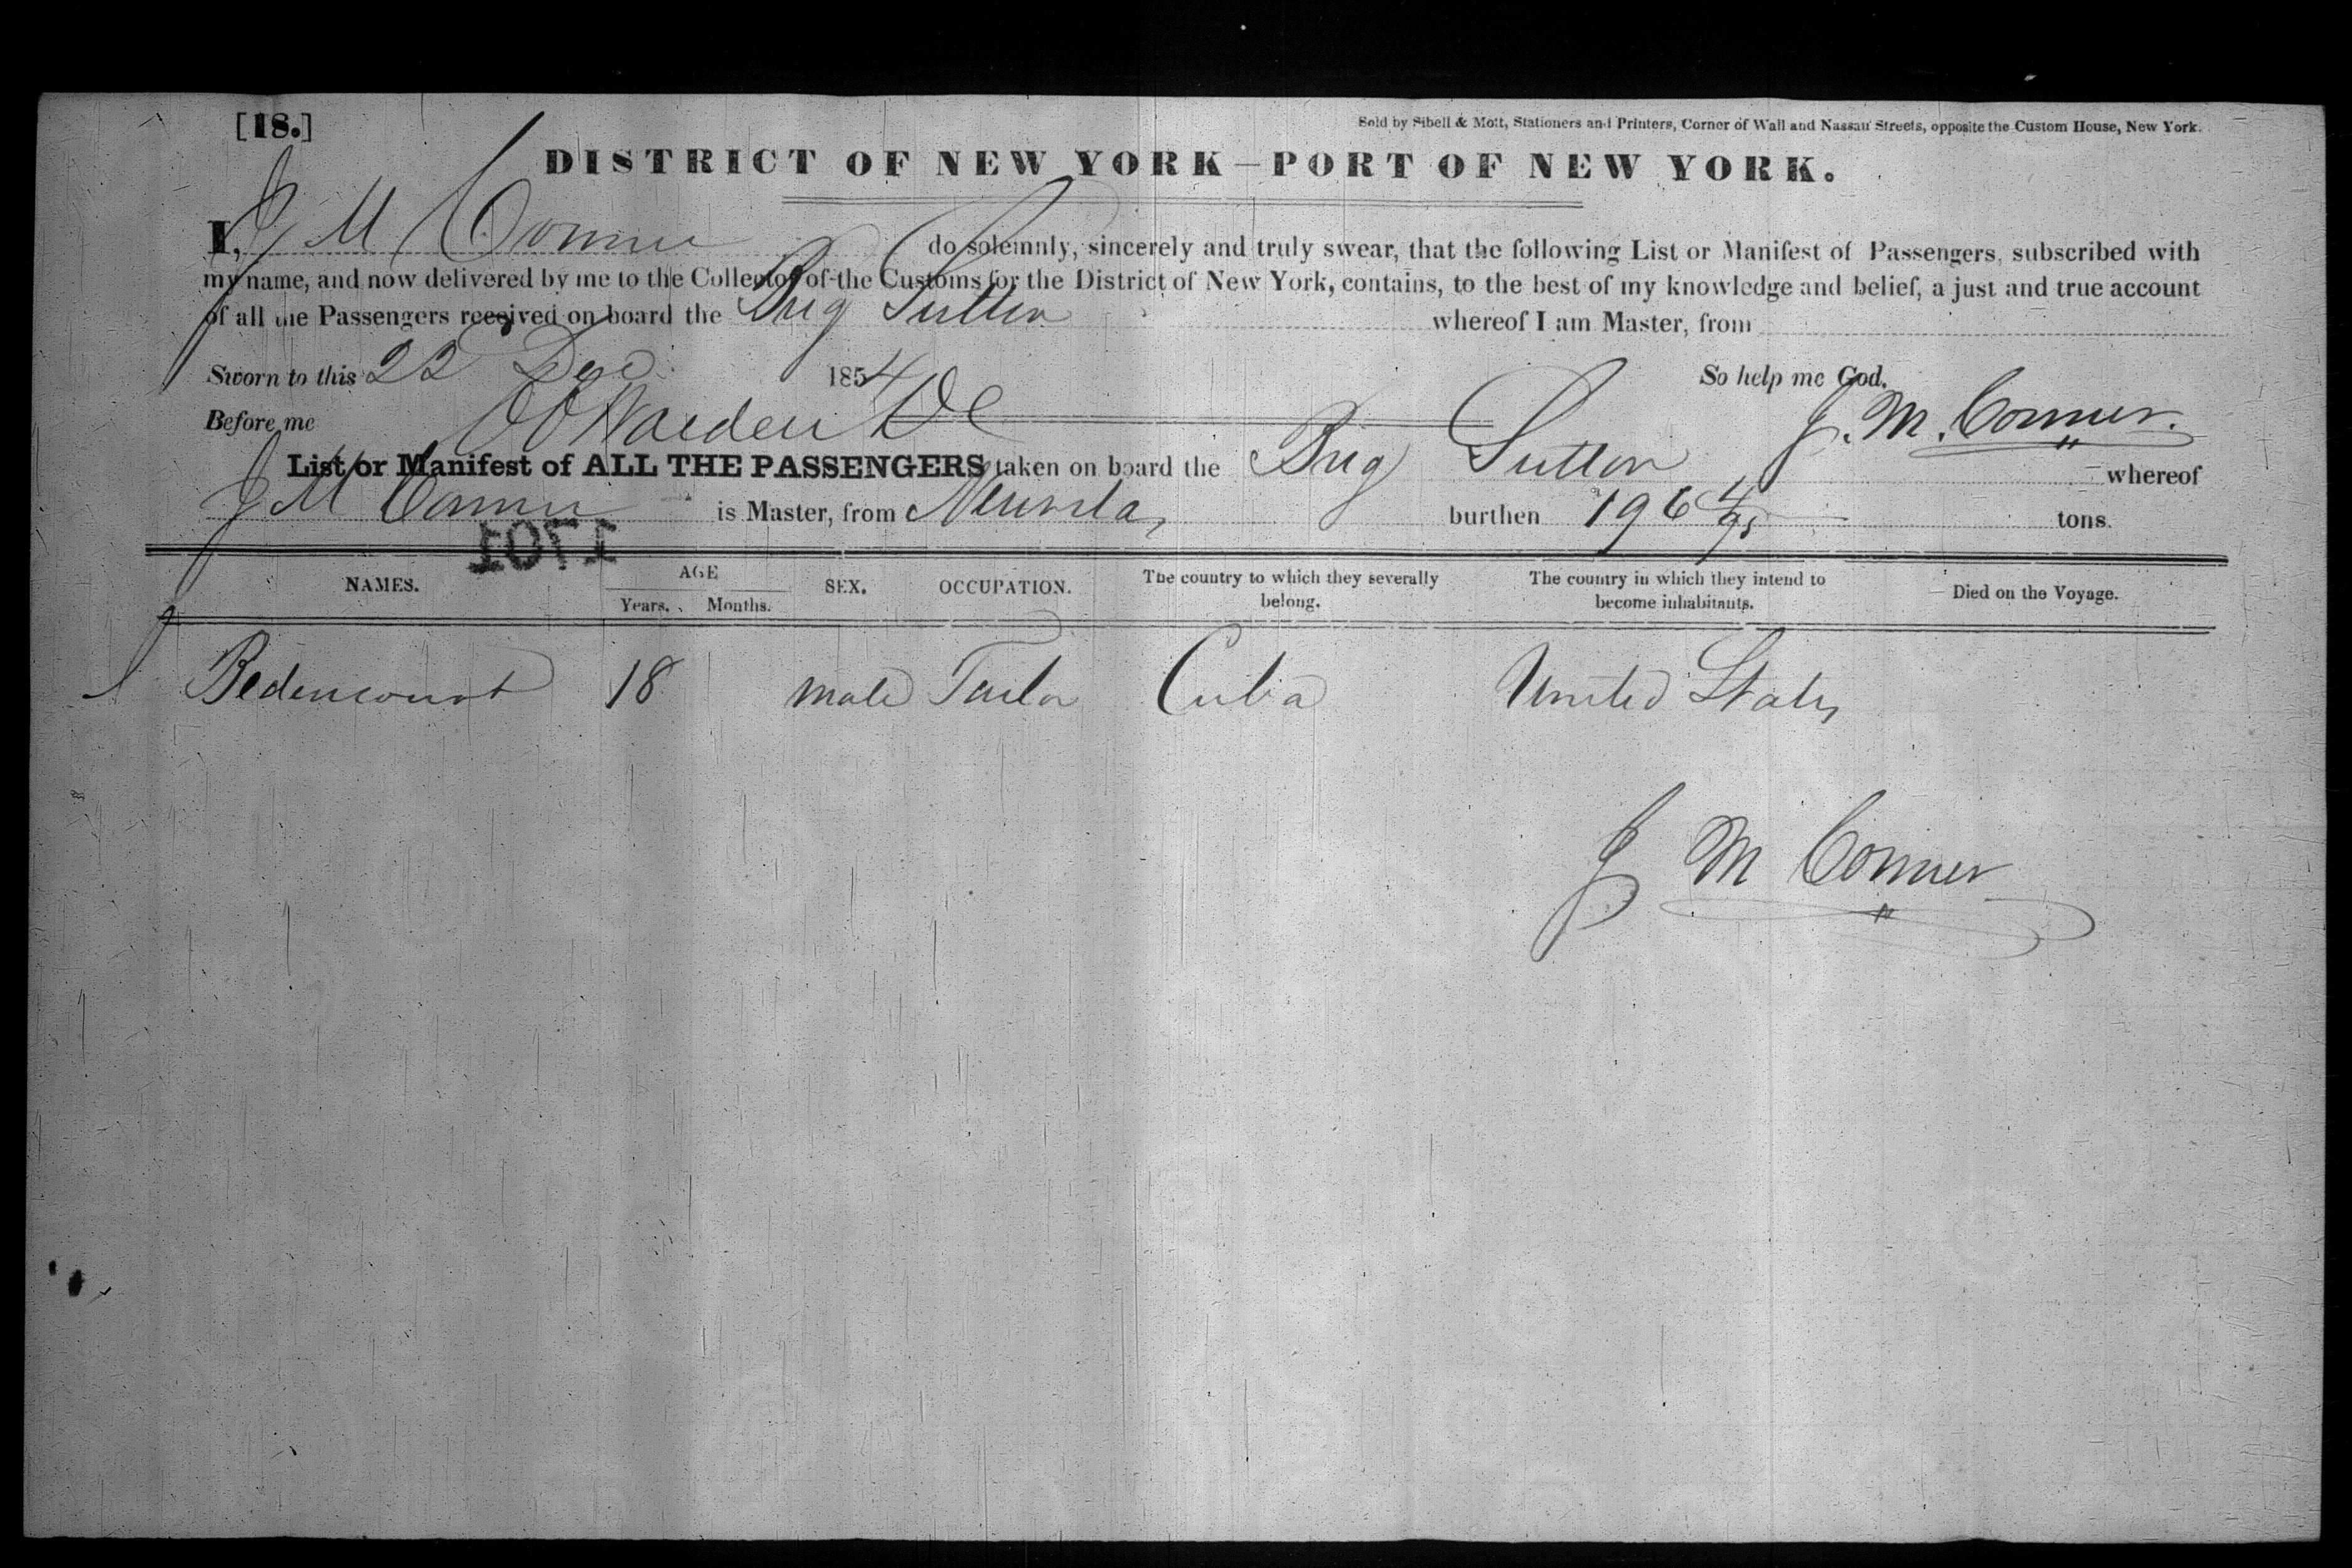 [18.]
Sold by Sibell & Mott, Stationers and Printers, Corner of Wall and Nassau Streets, opposite the Custom House, New York.
DISTRICT OF NEW YORK—PORT OF NEW YORK.
I, J M Conner do solemnly, sincerely and truly swear, that the following List or Manifest of Passengers, subscribed with
my name, and now delivered by me to the Collector of the Customs for the District of New York, contains, to the best of my knowledge and belief, a just and true account
of all the Passengers received on board the Brig Sutton whereof I am Master, from
Sworn to this 22 Dec 1854 So help me God.
Before me J. M. Conner.
List or Manifest of ALL THE PASSENGERS taken on board the Brig Sutton whereof
J M Conner is Master, from Neuvitas, burthen 196 4/95 tons.
1071
NAMES. AGE Years. Months. SEX. OCCUPATION. The country to which they severally belong. The country in which they intend to become inhabitants. Died on the Voyage.
Bedencourt 18 male Tailor Cuba United States
J M Conner